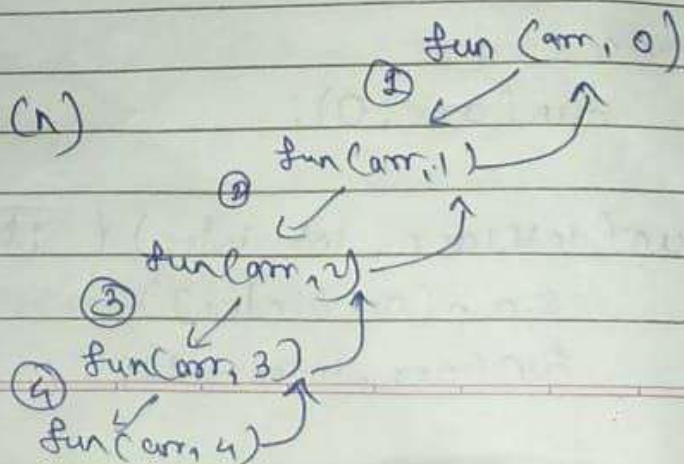 fun (arr, 0)
(n)
①
fun(arr, 1)
②
fun(arr, 2)
③
fun(arr, 3)
④
fun(arr, 4)